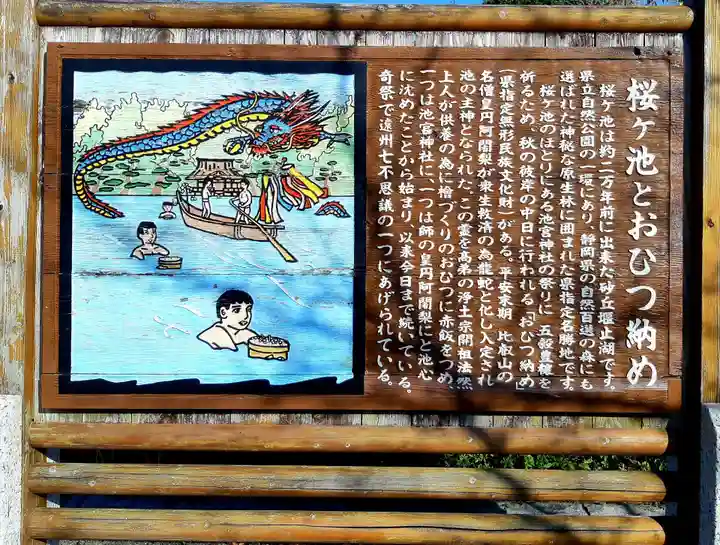 桜ヶ池とおひつ納め
桜ヶ池は約二万年前に出来た砂丘堰止湖です。
県立自然公園の一環にあり、静岡県の自然百選の森にも
選ばれた神秘な原生林に囲まれた県指定名勝地です。
桜ヶ池のほとりにある池宮神社の祭りに、五穀豊穣を
祈るため、秋の彼岸の中日に行われる「おひつ納め」
(県指定無形民族文化財)がある。平安末期、比叡山の
名僧皇円阿闍梨が衆生救済の為龍蛇と化し入定され
池の主神となられた。この霊を高弟の浄土宗開祖法然
上人が供養の為に檜づくりのおひつに赤飯をつめ、
一つは池宮神社に、一つは師の皇円阿闍梨にと池心
に沈めたことから始まり、以来今日まで続いている。
奇祭で遠州七不思議の一つにあげられている。